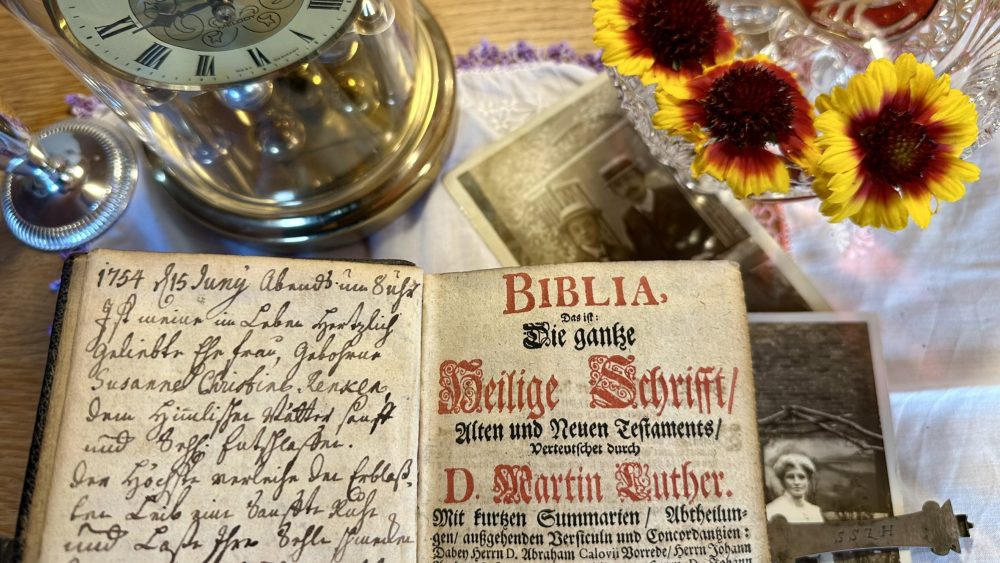 1754 d 15 Juny Abends um 8 uhr
Ist meine im Leben Hertzlich
Geliebte Ehe frau, Gebohrne
Susanne Christine Renken,
dem Himlischen Vatter sanft
und Sehl. Entschlaffen.
der Höchste verleihe den Erblaß-
ten Leib eine Sanffte Ruhe
und Laße Ihre Sehle schmecken
BIBLIA,
Das ist:
Die gantze
Heilige Schrifft/
Alten und Neuen Testaments/
Verteutschet durch
D. Martin Luther.
Mit kurtzen Summarien/ Abtheilun-
gen/ außgehenden Versiculn und Concordantzien:
Dabey Herrn D. Abraham Calovii Vorrede/ Herrn Johann
SSZH